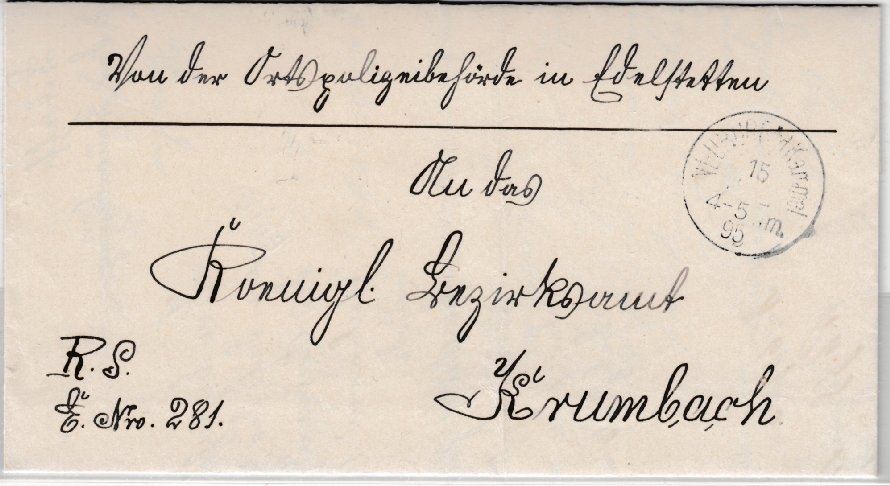 Von der Ortspolizeibehörde in Edelstetten
An das
Koenigl. Bezirksamt
Krumbach
R. S.
E. Nro. 281.
15
4-5 Nm.
95